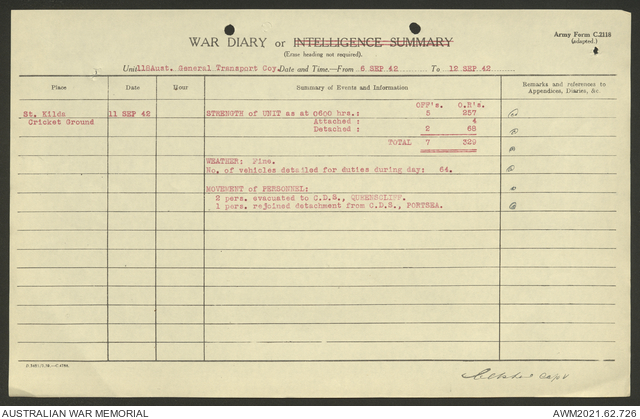 Army Form C.2118
(adapted.)
WAR DIARY or INTELLIGENCE SUMMARY
(Erase heading not required).
Unit 118 Aust. General Transport Coy. Date and Time.—From 6 SEP 42 To 12 SEP 42
Place Date Hour Summary of Events and Information Remarks and references to Appendices, Diaries, &c.
OFF's. O.R's.
St. Kilda 11 SEP 42 STRENGTH of UNIT as at 0600 hrs.: 5 257
Cricket Ground Attached : 4
Detached : 2 68
TOTAL 7 329
WEATHER: Fine.
No. of vehicles detailed for duties during day: 64.
MOVEMENT of PERSONNEL:
2 pers. evacuated to C.D.S., QUEENSCLIFF.
1 pers. rejoined detachment from C.D.S., PORTSEA.
Capt
AUSTRALIAN WAR MEMORIAL AWM2021.62.726